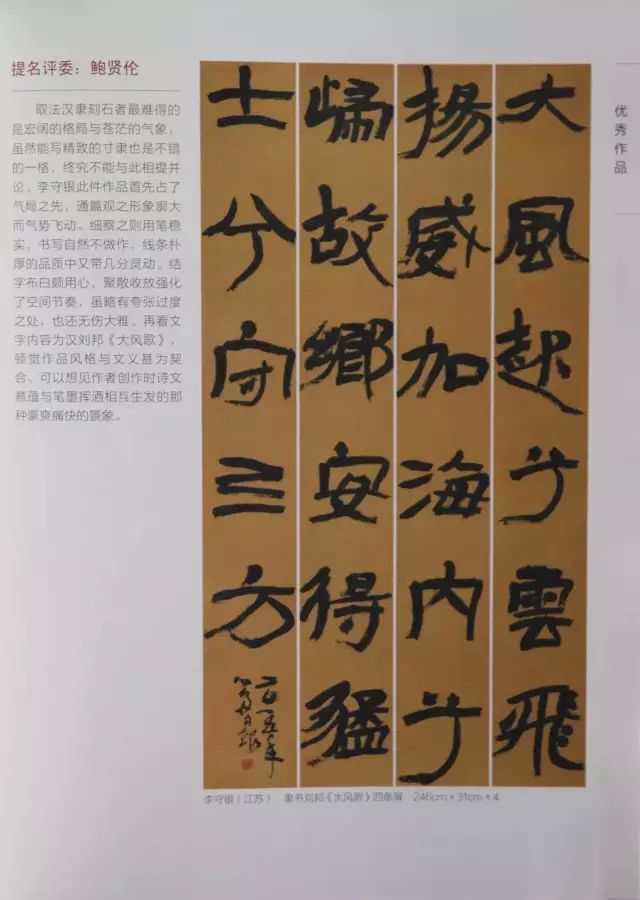 提名评委：鲍贤伦
取法汉隶刻石者最难得的
是宏阔的格局与苍茫的气象，
虽然能写精致的寸隶也是不错
的一格，终究不能与此相提并
论。李守银此件作品首先占了
气局之先，通篇观之形象廓大
而气势飞动。细察之则用笔稳
实，书写自然不做作，线条朴
厚的品质中又带几分灵动。结
字布白颇用心，聚散收放强化
了空间节奏，虽略有夸张过度
之处，也还无伤大雅。再看文
字内容为汉刘邦《大风歌》，
顿觉作品风格与文义甚为契
合。可以想见作者创作时诗文
意蕴与笔墨挥洒相互生发的那
种豪爽痛快的景象。
大風起兮雲飛
揚威加海内兮
歸故鄉安得猛
士兮守三方
李守银（江苏） 隶书刘邦《大风歌》四条屏 246cm×31cm×4
优秀作品